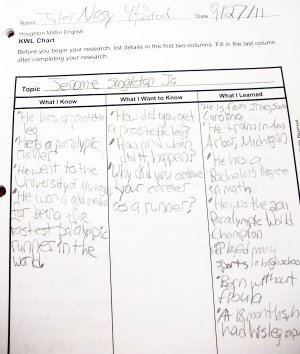 Name Tyler Nagy 4th period Date 9/27/11
Houghton Mifflin English
KWL Chart
Before you begin your research, list details in the first two columns. Fill in the last column
after completing your research.
Topic Jerome Singleton Jr.
What I Know
• He has a prosthetic
leg
• He's a paralypic
runner
• He went to the
University of Michigan
• He won a gold medal
for being the
fastest paralympic
runner in the
world
What I Want to Know
• How did you get
a prostetic leg?
• How and when
did it happen?
• Why did you continue
your career
as a runner?
What I Learned
• He is from South
Carolina
• He trains in Ann
Arbor, Michigan
• He has a
Bachelor's Degree
in math
• He was the 2011
Paralympic World
Champion
• Played many
sports in high school
• Born without
fibula
• At 18 months, he
had his leg